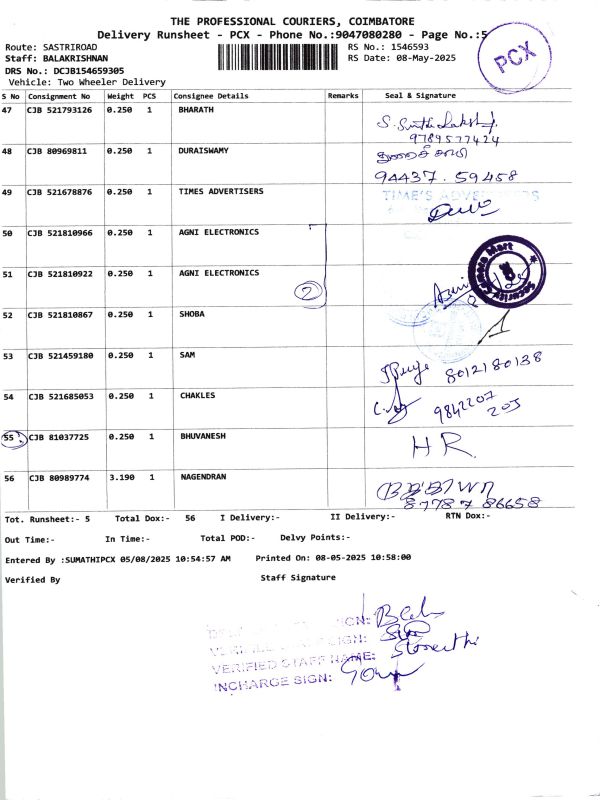 THE PROFESSIONAL COURIERS, COIMBATORE
Delivery Runsheet - PCX - Phone No.:9047080280 - Page No.:5
PCX
Route: SASTRIROAD
RS No.: 1546593
Staff: BALAKRISHNAN
RS Date: 08-May-2025
DRS No.: DCJB154659305
Vehicle: Two Wheeler Delivery
S No Consignment No Weight PCS Consignee Details Remarks Seal & Signature
47 CJB 521793126 0.250 1 BHARATH
9789577424
48 CJB 80969811 0.250 1 DURAISWAMY
94437. 59458
49 CJB 521678876 0.250 1 TIMES ADVERTISERS
TIME'S ADVERTISERS
50 CJB 521810966 0.250 1 AGNI ELECTRONICS
51 CJB 521810922 0.250 1 AGNI ELECTRONICS
2
Security Camera Mart
52 CJB 521810867 0.250 1 SHOBA
53 CJB 521459180 0.250 1 SAM
8012180138
54 CJB 521685053 0.250 1 CHAKLES
9842207
205
55 CJB 81037725 0.250 1 BHUVANESH
HR
56 CJB 80989774 3.190 1 NAGENDRAN
87787 86658
Tot. Runsheet:- 5 Total Dox:- 56 I Delivery:- II Delivery:- RTN Dox:-
Out Time:- In Time:- Total POD:- Delvy Points:-
Entered By :SUMATHIPCX 05/08/2025 10:54:57 AM Printed On: 08-05-2025 10:58:00
Verified By Staff Signature
VERIFIED STAFF NAME:
INCHARGE SIGN: